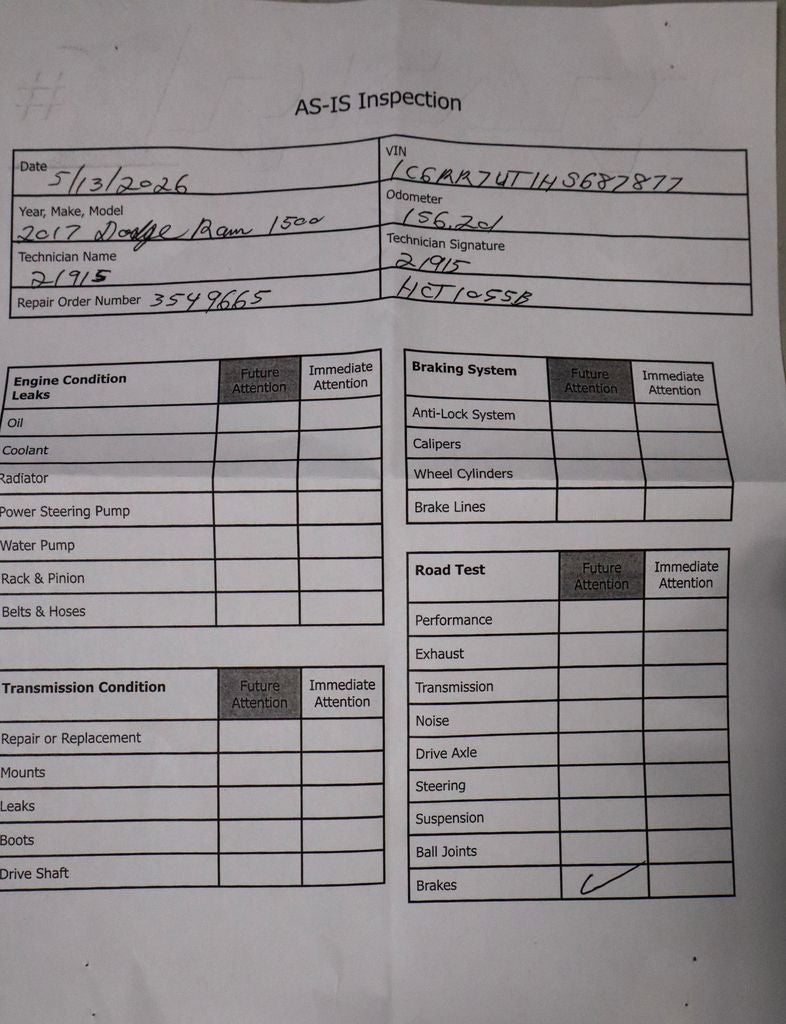 AS-IS Inspection
Date 5/13/2026
VIN 1C6RR7UT1HS687877
Year, Make, Model 2017 Dodge Ram 1500
Odometer
Technician Name 21915
Technician Signature 21915
Repair Order Number 3549665
HCT1055B
Engine Condition Leaks Future Attention Immediate Attention
Oil
Coolant
Radiator
Power Steering Pump
Water Pump
Rack & Pinion
Belts & Hoses
Transmission Condition Future Attention Immediate Attention
Repair or Replacement
Mounts
Leaks
Boots
Drive Shaft
Braking System Future Attention Immediate Attention
Anti-Lock System
Calipers
Wheel Cylinders
Brake Lines
Road Test Future Attention Immediate Attention
Performance
Exhaust
Transmission
Noise
Drive Axle
Steering
Suspension
Ball Joints
Brakes ✓